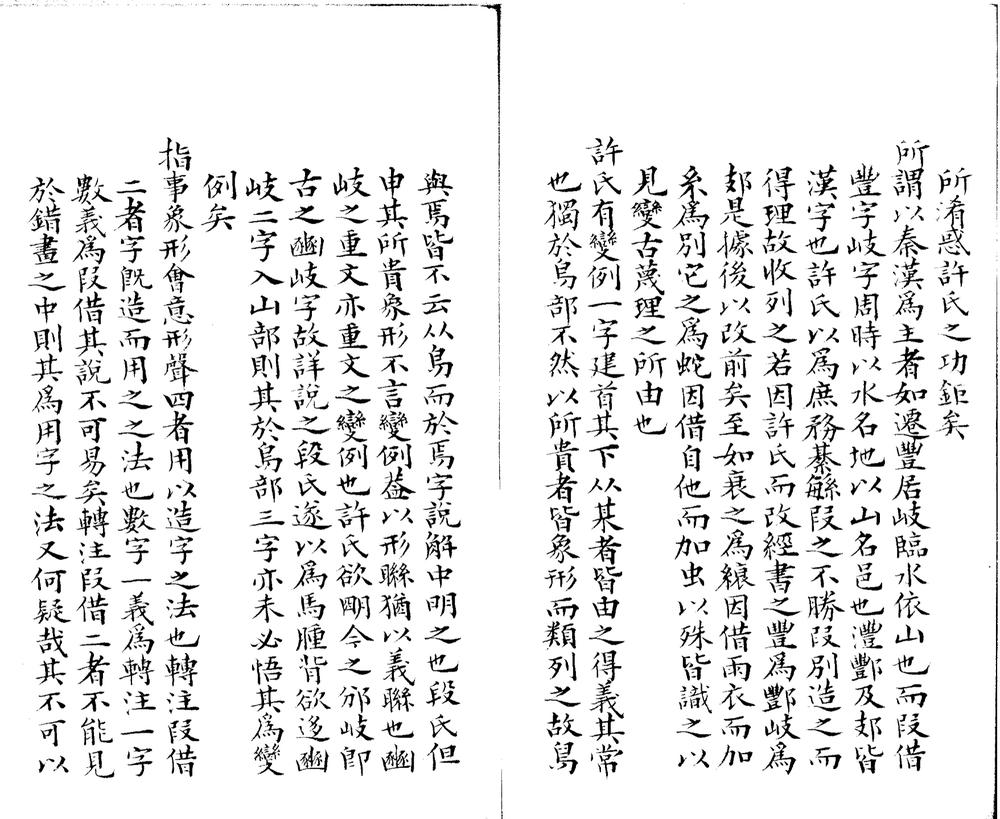 所淆惑許氏之功鉅矣
所謂以秦漢為主者如遷豐居岐臨水依山也而叚借
豐字岐字周時以水名地以山名邑也灃酆及郂皆
漢字也許氏以為庶務綦緐叚之不勝叚別造之而
得理故收列之若因許氏而改經書之豐為酆岐為
郂是據後以改前矣至如衰之為縗因借雨衣而加
糸為別它之為蛇因借自他而加虫以殊皆識之以
見變古蔑理之所由也
許氏有變例一字建首其下从某者皆由之得義其常
也獨於鳥部不然以所貴者皆象形而類列之故舃
與焉皆不云从鳥而於焉字說解中明之也段氏但
申其所貴象形不言變例葢以形聯猶以義聯也𨙸
岐之重文亦重文之變例也許氏欲朙今之邠岐卽
古之豳岐字故詳說之段氏遂以為馬腫背欲迻豳
岐二字入山部則其於鳥部三字亦未必悟其為變
例矣
指事象形會意形聲四者用以造字之法也轉注叚借
二者字旣造而用之之法也數字一義為轉注一字
數義為叚借其說不可易矣轉注叚借二者不能見
於錯畫之中則其為用字之法又何疑哉其不可以